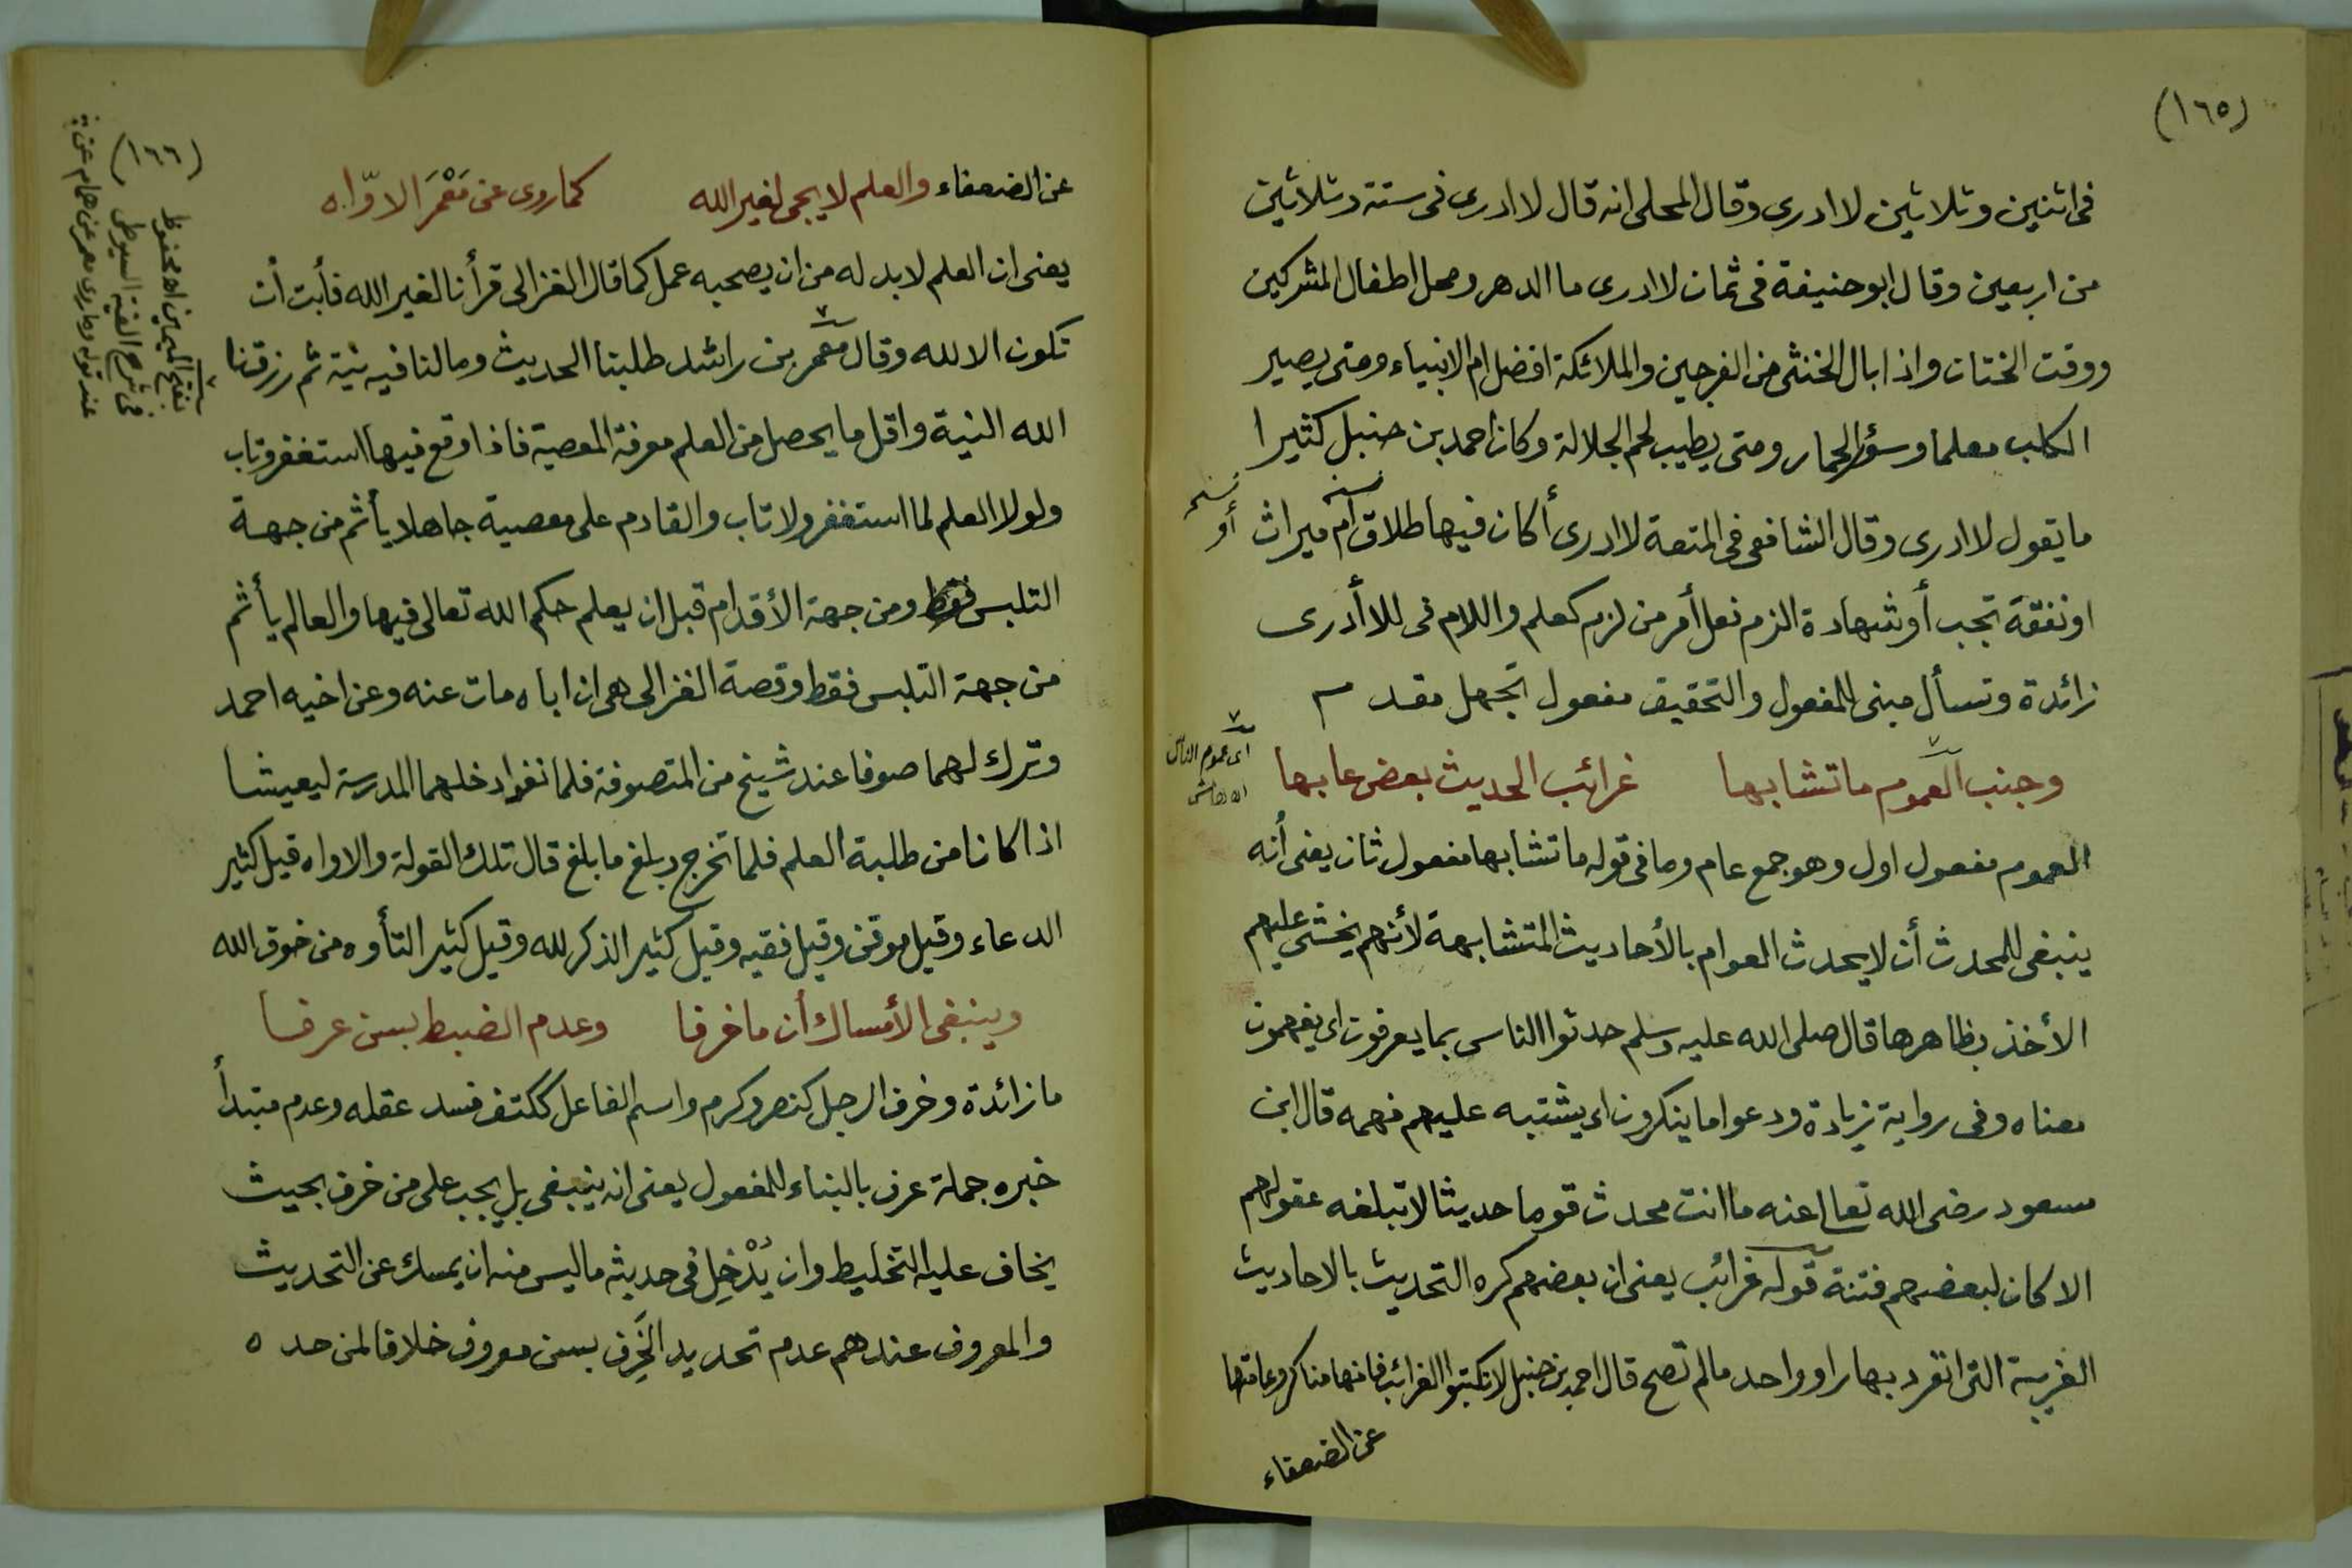 (١٦٥)
فى اثنين وثلاثين لا ادرى وقال المحلى انه قال لا ادرى فى ستة وثلاثين
من اربعين وقال ابو حنيفة فى ثمان لا ادرى ما الدهر ومحل اطفال المشركين
ووقت الختان واذا بال الخنثى من الفرجين والملائكة افضل ام الانبياء ومتى يصير
الكلب معلما وسؤر الحمار ومتى يطيب لحم الجلالة وكان احمد بن حنبل كثيرا
ما يقول لا ادرى وقال الشافعى فى المتعة لا ادرى أكان فيها طلاق أم ميراث
نسخه أو
او نفقة تجب أو شهادة الزم فعل أمر من لزم كعلم واللام فى للا أدرى
زائدة وتسأل مبنى للمفعول والتحقيق مفعول تجهل مقدم
وجنب العموم ما تشابها غرائب الحديث بعض عابها
اى عموم الناس
اه هامش
العموم مفعول اول وهو جمع عام وما فى قوله ما تشابها مفعول ثان يعنى أنه
ينبغى للمحدث أن لا يحدث العوام بالأحاديث المتشابهة لأنهم يخشى عليهم
الأخذ بظاهرها قال صلى الله عليه وسلم حدثوا الناس بما يعرفون اى يفهمون
معناه وفى رواية زيادة ودعوا ما ينكرون اى يشتبه عليهم فهمه قال ابن
مسعود رضى الله تعالى عنه ما انت محدث قوما حديثا لا تبلغه عقولهم
الا كان لبعضهم فتنة قوله غرائب يعنى ان بعضهم كره التحديث بالاحاديث
الغريبة التى انفرد بها راو واحد ما لم تصح قال احمد بن حنبل لا تكتبوا الغرائب فانها مناكر وعامتها
عن الضعفاء
(١٦٦)
عن الضعفاء والعلم لا يجى لغير الله كما روى عن مَعْمَرَ الاوّاه
يعنى ان العلم لا بد له من ان يصحبه عمل كما قال الغزالى قرأنا لغير الله فأبت أن
تكون الا لله وقال معمر بن راشد طلبنا الحديث وما لنا فيه نية ثم رزقنا
الله النية واقل ما يحصل من العلم معرفة المعصية فاذا وقع فيها استغفر وتاب
ولولا العلم لما استغفر ولا تاب والقادم على معصية جاهلا يأثم من جهة
التلبس فقط ومن جهة الأقدام قبل ان يعلم حكم الله تعالى فيها والعالم يأثم
من جهة التلبس فقط وقصة الغزالى هى ان اباه مات عنه وعن اخيه احمد
وترك لهما صوفا عند شيخ من المتصوفة فلما نفد ادخلهما المدرسة ليعيشا
اذا كانا من طلبة العلم فلما تخرج وبلغ ما بلغ قال تلك القولة والاواه قيل كثير
الدعاء وقيل موقن وقيل فقيه وقيل كثير الذكر لله وقيل كثير التأوه من خوف الله
وينبغى الأمساك أن ما خرفا وعدم الضبط بسن عرفا
ما زائدة وخرف الرجل كنصر وكرم واسم الفاعل ككتف فسد عقله وعدم مبتدأ
خبره جملة عرف بالبناء للمفعول يعنى انه ينبغى بل يجب على من خرف بحيث
يخاف عليه التخليط وان يُدْخِل فى حديثه ما ليس منه ان يمسك عن التحديث
والمعروف عندهم عدم تحديد الخَرِف بسن معروف خلافا لمن حده
بفتح الميمين اه محفوظ
فى شرح الفية السيوطى
عند قوله وما روى معمر عن همام عن